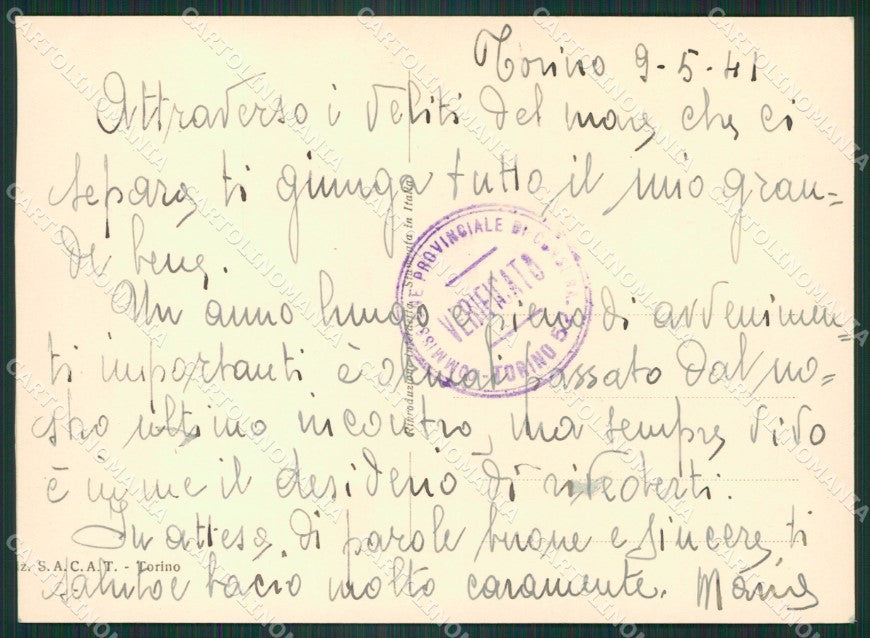 Torino 9-5-41
Attraverso i deliti del mare che ci
separa, ti giunga tutto il mio gran=
de bene.
Un anno lungo e pieno di avvenimen=
ti importanti è ormai passato dal no=
stro ultimo incontro, ma sempre vivo
è in me il desiderio di rivederti.
In attesa di parole buone e sincere, ti
saluto e bacio molto caramente. Maria
iz. S.A.C.A.T. - Torino
Riproduzione interdetta - Stampata in Italia
COMMISSIONE PROVINCIALE DI
VERIFICATO
TORINO 50
CARTOLINOMANIA